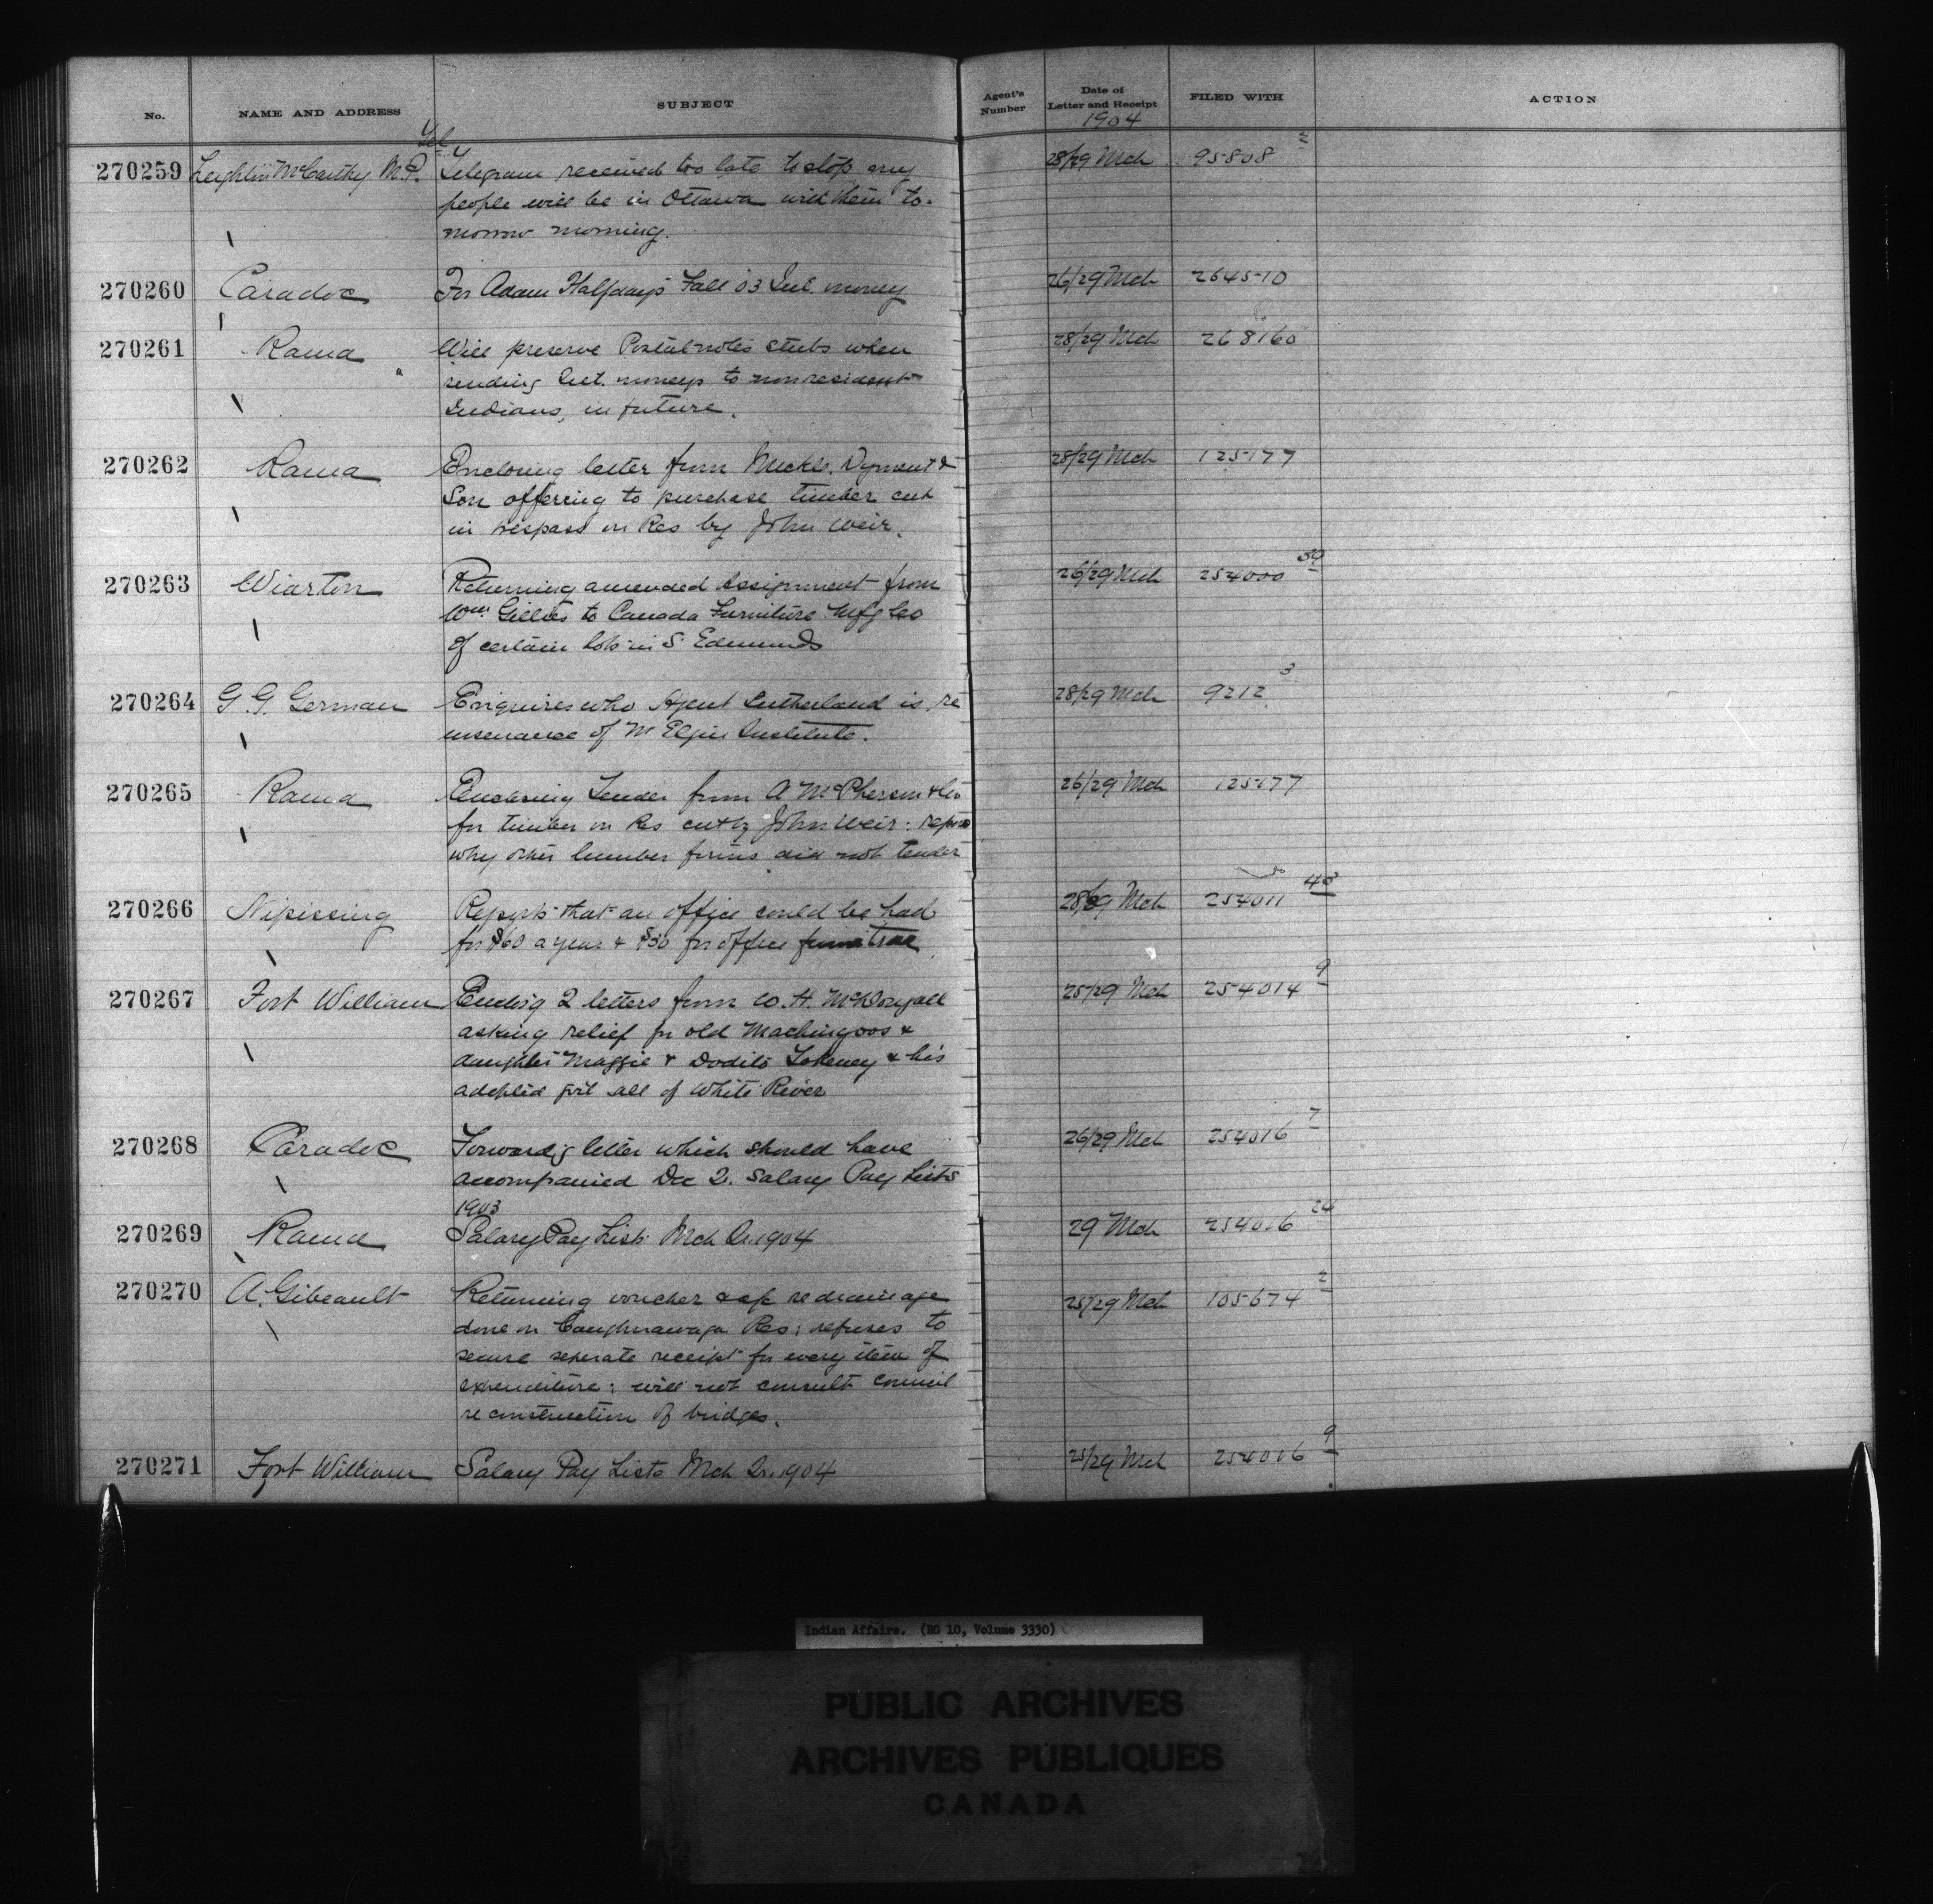 No. NAME AND ADDRESS SUBJECT Agent's Number Date of Letter and Receipt FILED WITH ACTION
1904
Tel
270259 Leighton McCarthy M.P. Telegram received too late to stop my 28/29 Mch 95808 2
people will be in Ottawa with them to-
morrow morning.
270260 Caradoc For Adam Halfday's Fall '03 Int. money 26/29 Mch 264510
270261 Rama Will preserve Postal notes stubs when 28/29 Mch 268160
sending Int. moneys to nonresident
Indians, in future.
270262 Rama Enclosing letter from Mickle, Dyment & 28/29 Mch 125177
Son offering to purchase timber cut
in trespass on Res by John Weir.
270263 Wiarton Returning amended Assignment from 26/29 Mch 254000 39
Wm Gillies to Canada Furniture Mfg Co
of certain lots in S. Edmunds
270264 G. G. German Enquires who Agent Sutherland is, re 28/29 Mch 9212 3
insurance of Mt Elgin Institute.
270265 Rama Enclosing Tender from A McPherson & Co 26/29 Mch 125177
for timber on Res cut by John Weir: reports
why other lumber firms did not tender
270266 Nipissing Reports that an office could be had 28/29 Mch 254011 48
for $60 a year & $30 for office furniture
270267 Fort William Enclos'g 2 letters from W. H. McDougall 25/29 Mch 254014 9
asking relief for old Machingoos &
daughter Maggie & Dodito Tokeney & his
adopted girl all of White River
270268 Caradoc Forward'g letter which should have 26/29 Mch 254016 7
accompanied Dec Q. Salary Pay Lists
1903
270269 Rama Salary Pay List Mch Qr. 1904 29 Mch 254016 24
270270 A. Gibeault Returning voucher re drainage 25/29 Mch 105674 2
done on Caughnawaga Res; refuses to
secure seperate receipt for every item of
expenditure; will not consult council
re construction of bridges.
270271 Fort William Salary Pay Lists Mch Qr. 1904 25/29 Mch 254016 9
Indian Affairs. (RG 10, Volume 3330)
PUBLIC ARCHIVES
ARCHIVES PUBLIQUES
CANADA